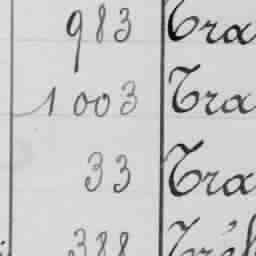 983 Tra
1003 Tra
33 Tra
388 Tré